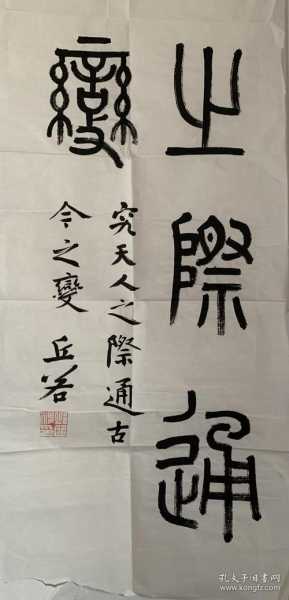 之際通
變
究天人之際通古
今之變 丘若
孔夫子旧书网
www.kongfz.com